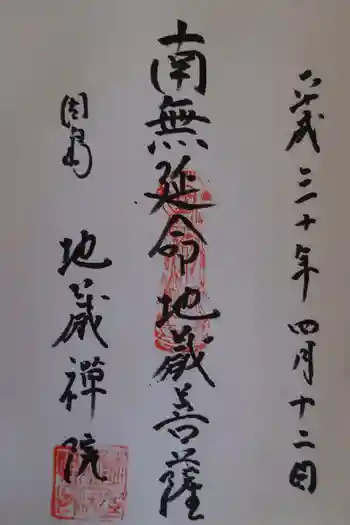 平成三十年四月十二日
南無延命地蔵菩薩
因島
地蔵禅院